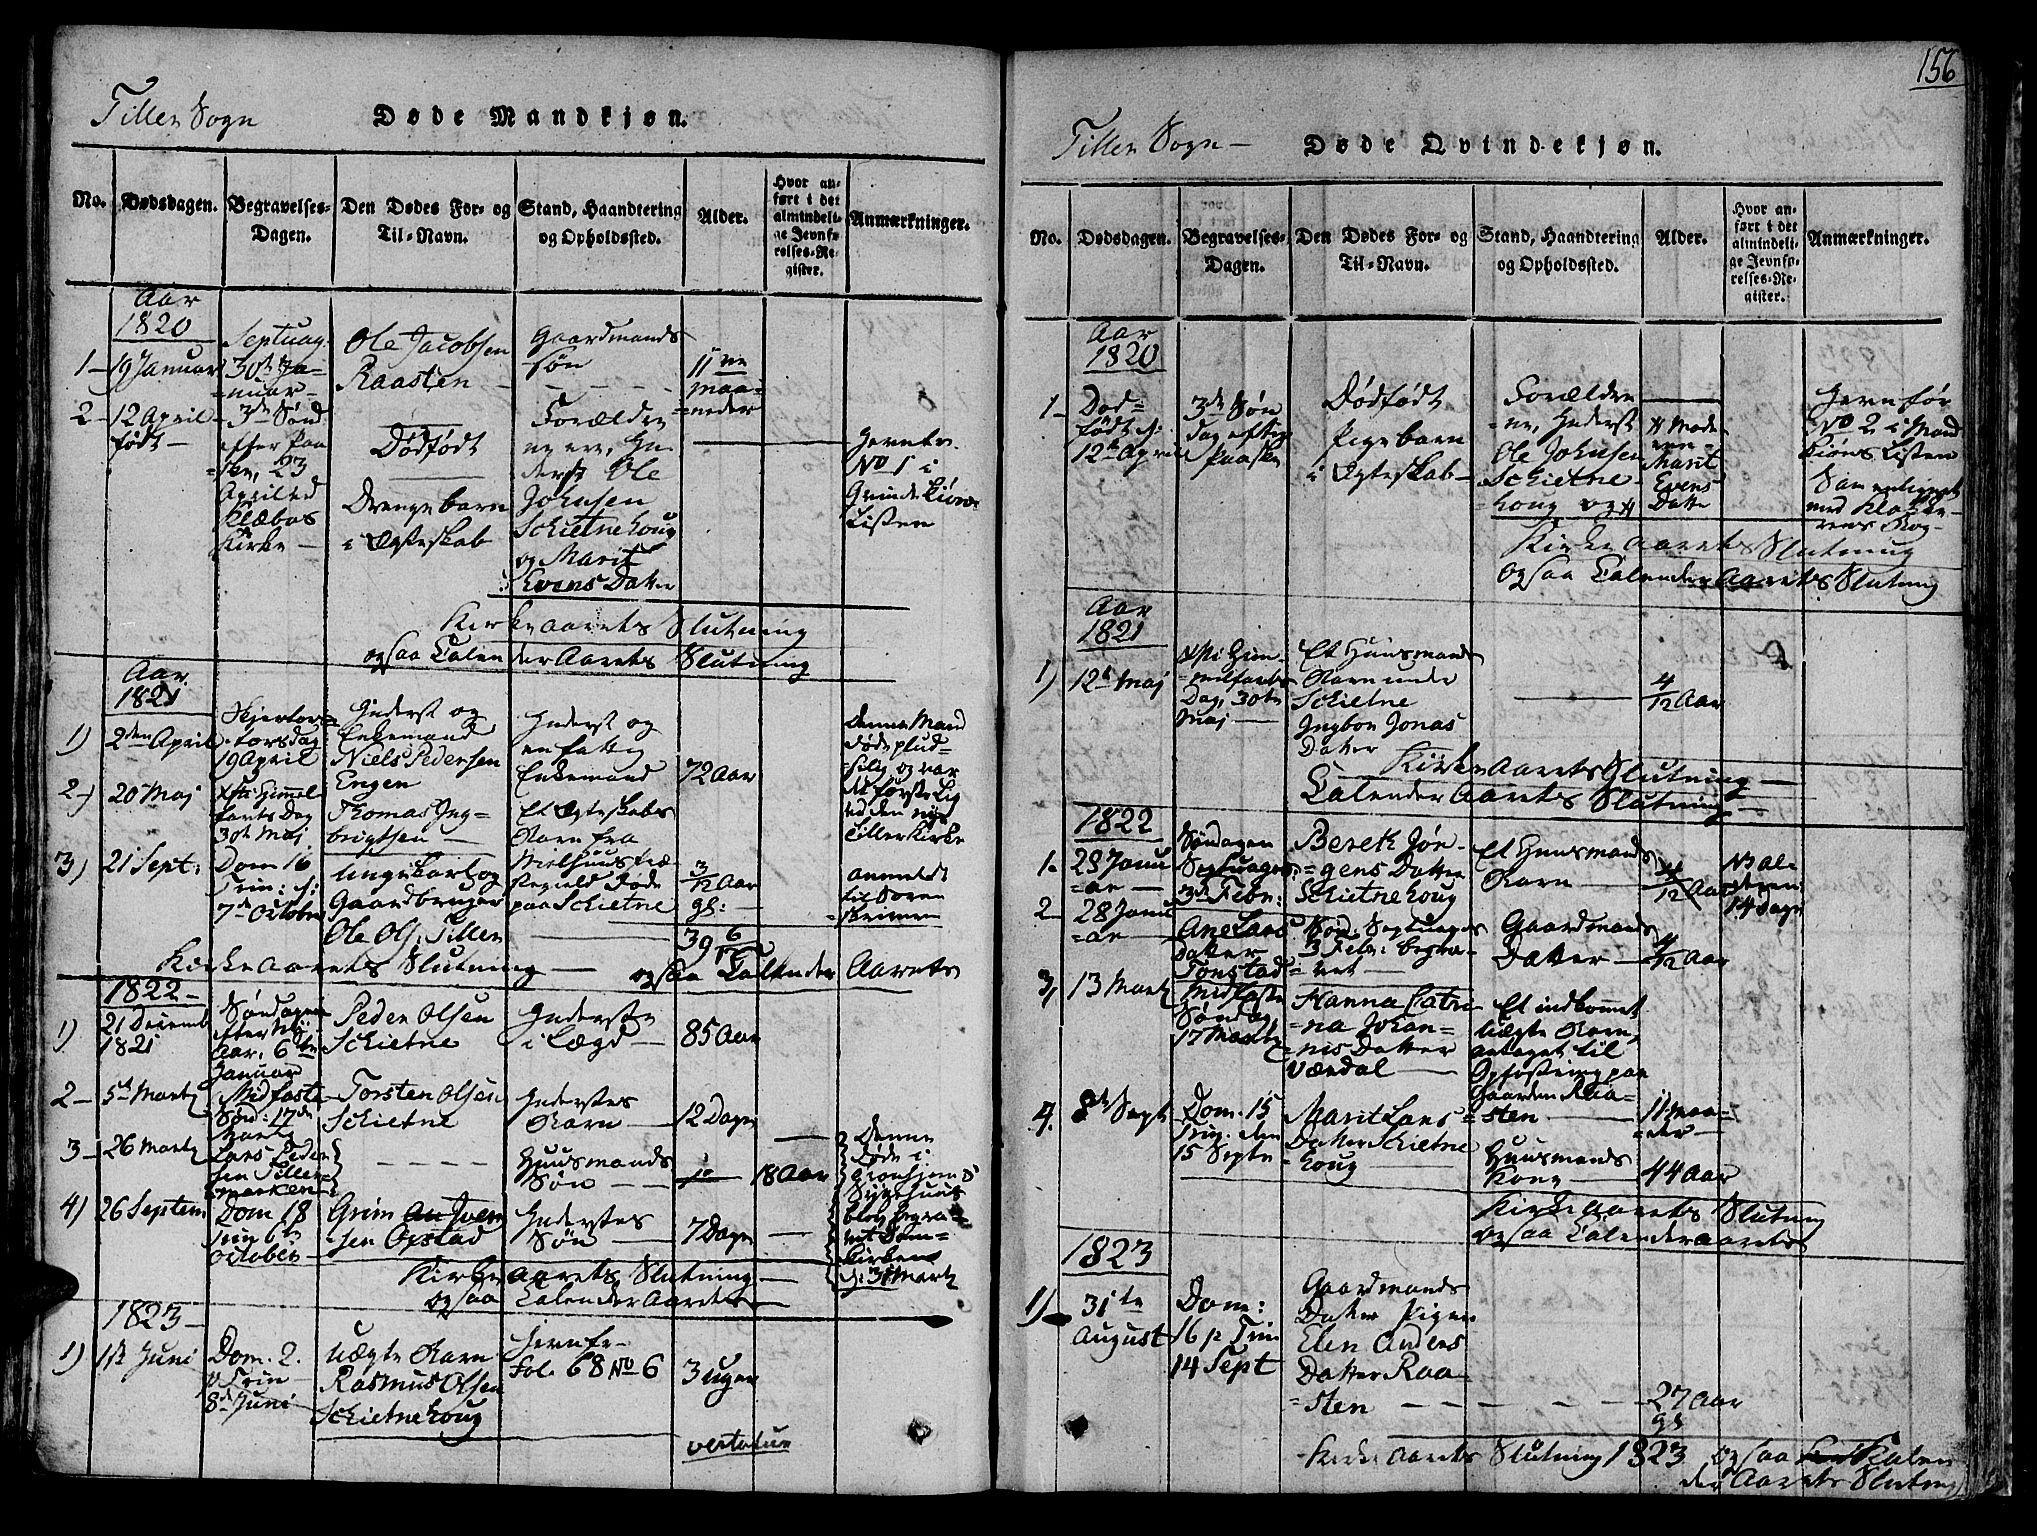 Tiller Sogn
Døde Mandkjøn.
No.
Dødsdagen.
Begravelses-
Dagen.
Den Dødes For- og
Til-Navn.
Stand, Haandtering
og Opholdssted.
Alder.
Hvor an-
ført i det
almindeli-
ge Jevnfø-
relses-Re-
gister.
Anmærkninger.
Aar
1820
1 –
19 Januar
Septuag.
30te Ja-
nuar –
Ole Jacobsen
Raasten –
Gaardmands
Søn
11 
maa-
neder
2 –
12 April
født –
3de Sønd
efter Paa
ske, 23
April ved
Klæboe
Kirke –
Dødfødt
Drengebarn
i Ægteskab
Forældre
ne ere, In
derst Ole
Johnsen
Schietnehoug
og Marit
Evens Datter
No 1 i
Qvindekiøns
Listen
Kirkeaarets Slutning
ogsaa Calender Aarets Slutning
Aar
1821
1)
2den April
Skiertors-
torsdag
19 April
Inderst og
Enkemand
Niels Pedersen
Engen
Inderst og
en fattig
Enkemand
72 Aar
Denne Mand
døde plud-
selig og var
det første Lig
ved den nye
Tiller Kirke
2)
20 Maj
Xsti Himmel
farts Dag
30te Maj
Thomas Ing-
brigtsen –
Et Ægteskabs
Barn fra
3/12 Aar
gl:
3)
21 Sept:
Dom 16
Trin: d:
7de October
Ungekarl og
Gaardbruger
Ole Ols. Tiller
døde
paa Schietne
39 6/12
anmeldt
til Soren-
skriveren
Kirkeaarets Slutning – ogsaa Calender Aarets
1822 –
1)
21 Decemb
1821
Søndagen
efter Nyt
Aar, 6te
Januar
Peder Olsen
Schietne
Inderste
i Lægd –
85 Aar
2 –
5te Martz
Midfaste
Sønd: 17de
Martz
Torsten Olsen
Schietne
Inderstes
Barn –
12 Dage
3 –
26 Martz
Lars Peder
sen Tiller
marken –
Huusmands
Søn –
18 Aar
Denne
døde i
Trondhjems
Sygehuus
blev begra-
vet Dom-
kirken
d: 31 Martz
4)
26 Septem
Dom 18
Trin 6te
October
Grim an Iver
sen Orstad
Inderstes
Søn –
7 Dage
Kirke aarets Slutning –
ogsaa Calender Aarets
1823 –
1)
1ste Juni
Dom. 2.
p Trin –
8de Juni
Uægte Barn
Rasmus Olsen
Schietnehoug
Jevnfr-
Fol. 68 No 6
3 uger
vertatur
156
Tiller Sogn –
Døde Qvindekjøn.
No.
Dødsdagen.
Begravelses-
Dagen.
Den Dødes For- og
Til-Navn.
Stand, Haandtering
og Opholdssted.
Alder.
Hvor an-
ført i det
almindeli-
ge Jevnfø-
relses-Re-
gister.
Anmærkninger.
Aar
1820
1 –
Død-
født d:
12te April
3de Søn
dag efter
Paaske
Dødfødt
Pigebarn
i Ægteskab –
Forældre
ne, Inderst
Ole Johnsen
Schietne-
houg og x
x Mode
ren –
Marit
Evens
Datter
Jevnfør
No 2 i Mand
Kiøns Listen
Sammenlignet
med Klokke-
rens Bog –
Kirke aarets Slutning
ogsaa Calender Aarets Slutning
Aar
1821
1)
12te Maj
Xsti Him-
melfarts
Dag, 30te
Maj –
Et Huusmands
Barn unde
Schietne
Ingbor Jonas
Datter
4/12 Aar
Kirke Aarets Slutning –
Calender Aarets Slutning –
1822
1.
23 Janu
ar –
Søndagen
Septuages:
3de Febr:
Berek Jør-
gens Datter
Schietnehoug
Et Huusmands
Barn –
4/12 Aar
14 Dage
2 –
28 Janu
ar –
Ane Lars
Datter
Tonstad
Søn: Septuages
3 Febr: begra-
vet –
Gaardmands
Datter –
4/12 Aar
3)
13 Martz
Midfaste
Søndag
17 Martz
Hanna Catri-
na Johan-
nis Datter
Værdal –
Et indkommet
uægte Barn,
antaget til
Opfostring paa
Gaarden Raa-
sten –
11 Maa-
neder –
4.
8de Sept
Dom. 15
Trin. den
15 Septr
Marit Lars
Datter Schietne
houg –
Huusmands
Kone –
44 Aar
Kirke aarets Slutning
ogsaa Calenderaarets
1823
1)
31te
August
Dom:
16 p Trin
14 Sept
Gaardmands
Datter Pigen
Elen Anders
Datter Raa-
sten – – – – –
27 Aar
gl
Kirke aarets Slutning 1823 ogsaa Kalen
der Aarets Slutning